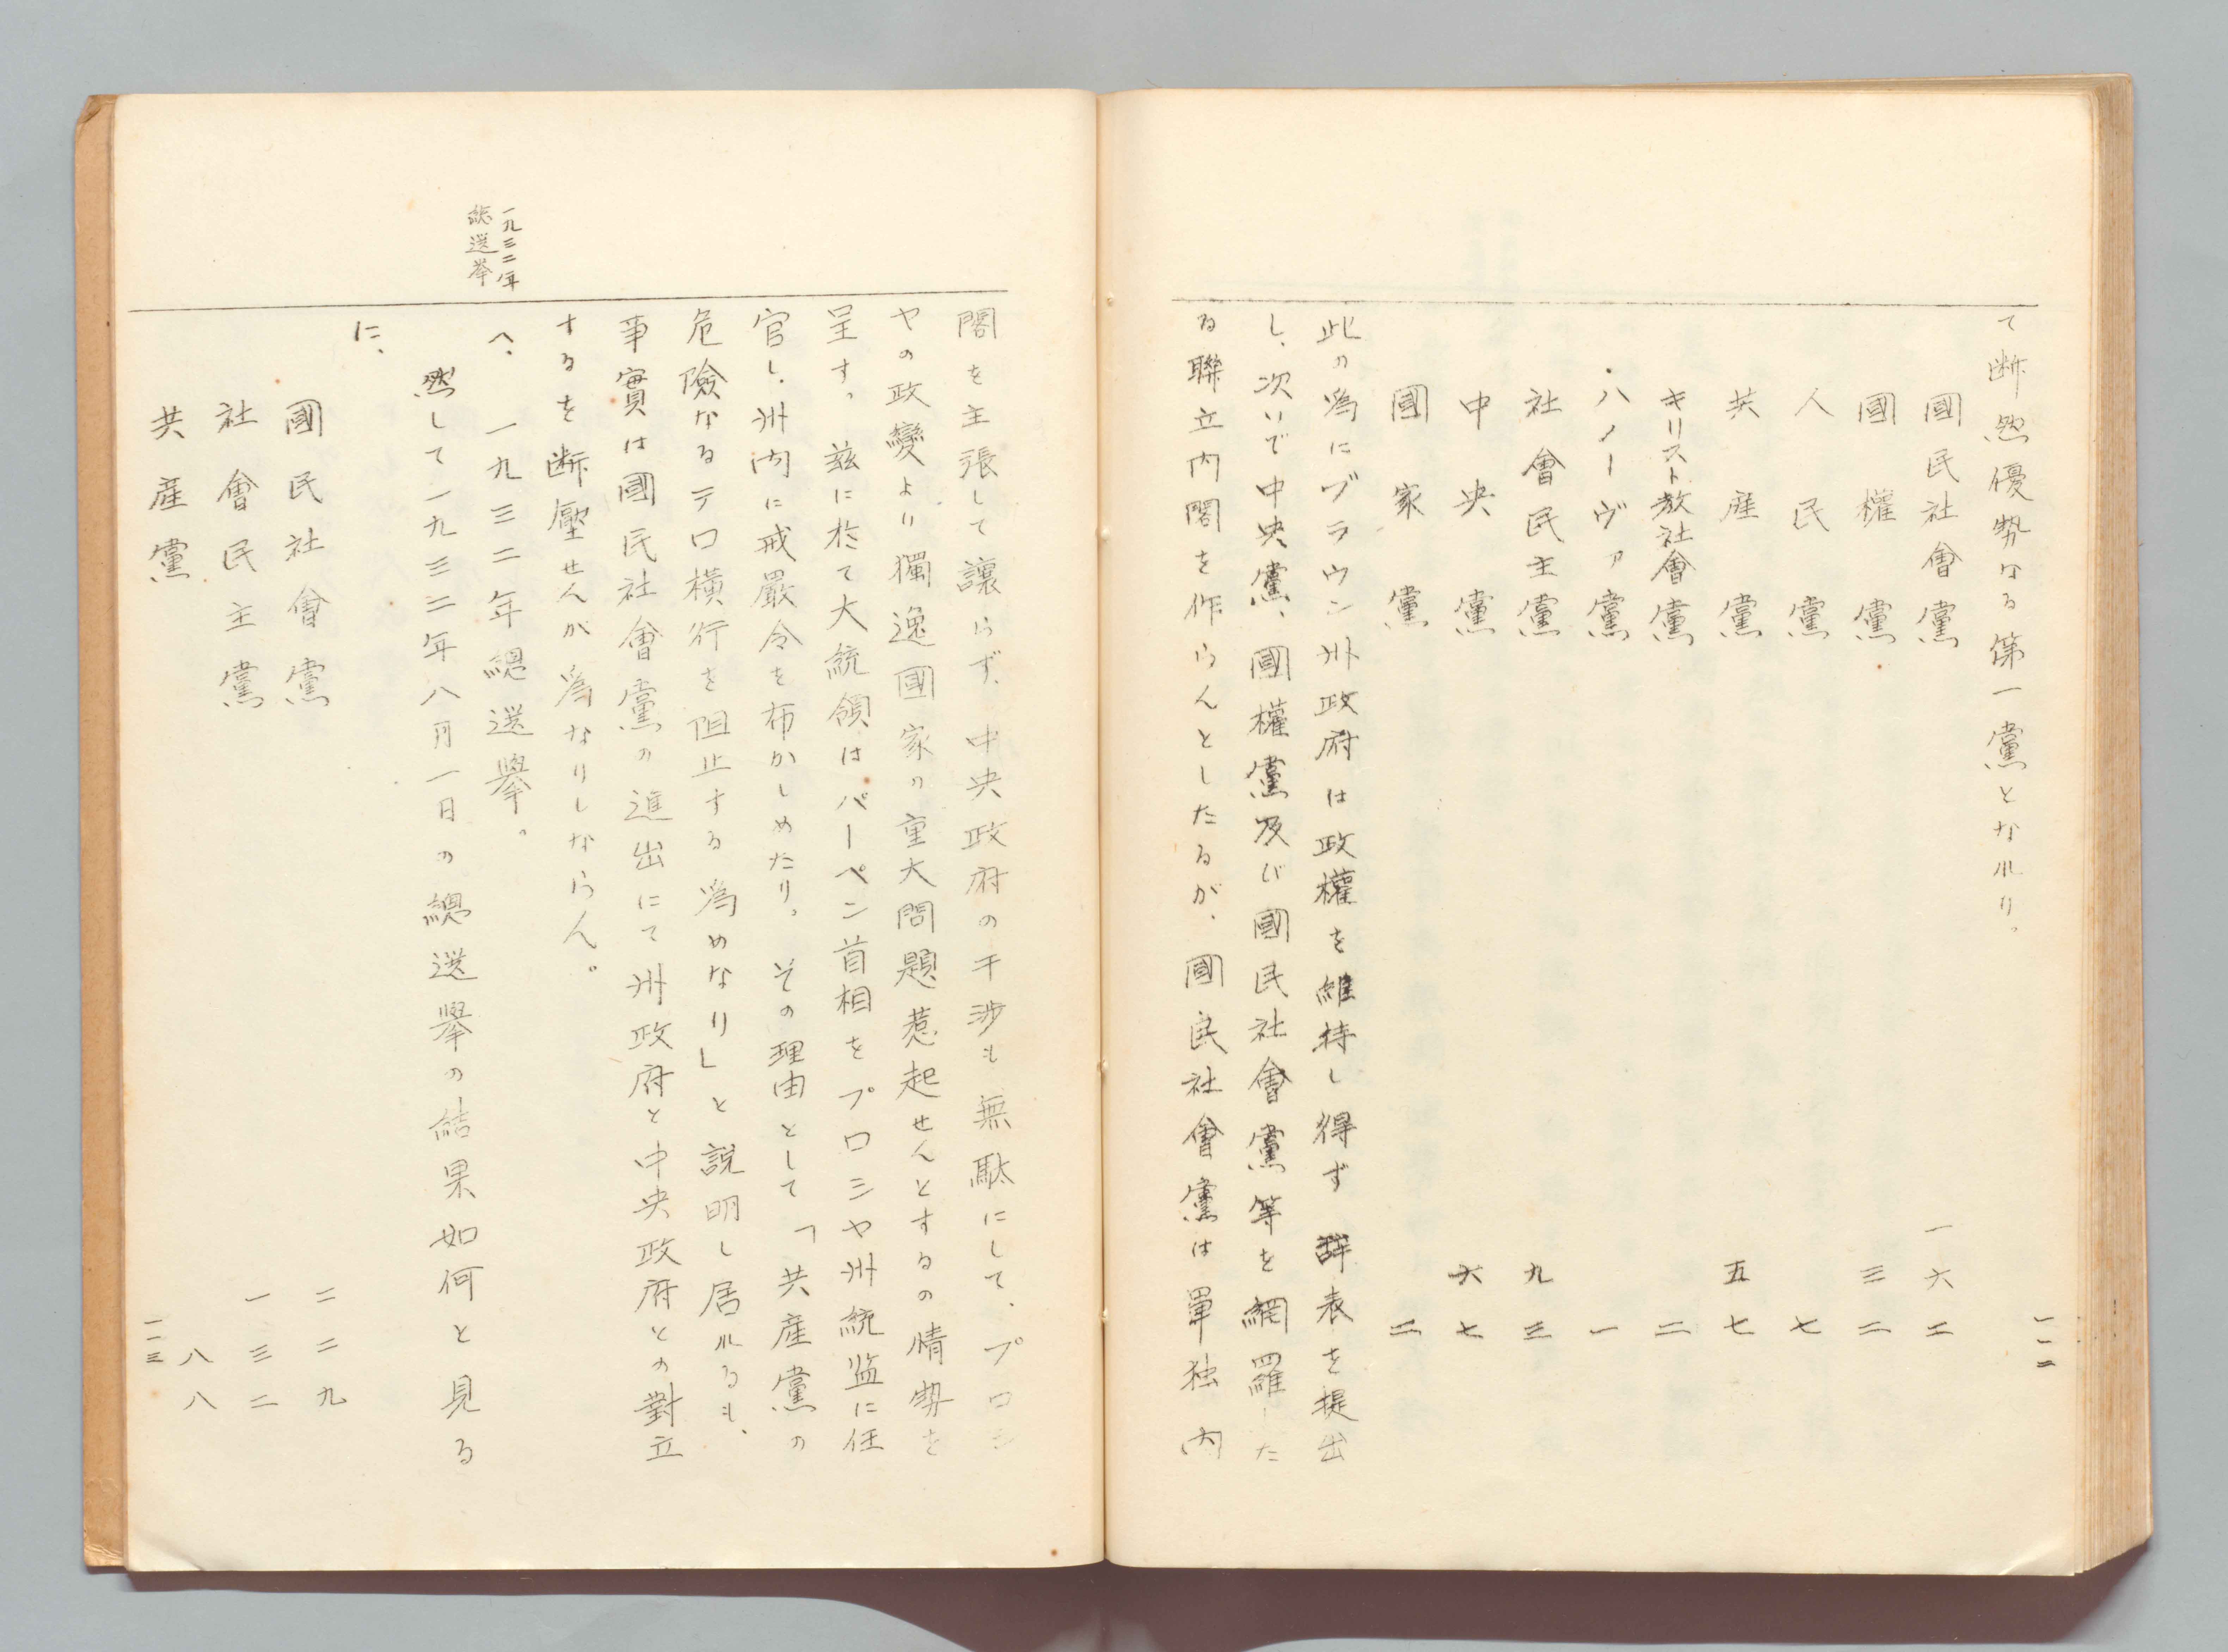 て断然優勢なる第一黨となれり。
國民社會黨 一六二
國權黨 三二
人民黨 七
共産黨 五七
キリスト教社會黨 二
ハノーヴァ黨 一
社會民主黨 九三
中央黨 六七
國家黨 二
此の爲にブラウン州政府は政權を維持し得ず辞表を提出
し、次いで中央黨、國權黨及び國民社會黨等を網羅した
る聯立内閣を作らんとしたるが、國民社會黨は單独内
一一二
閣を主張して讓らず、中央政府の干渉も無駄にして、プロシ
ヤの政變より獨逸國家の重大問題惹起せんとするの情勢を
呈す。茲に於て大統領はパーペン首相をプロシヤ州統監に任
官し、州内に戒嚴令を布かしめたり。その理由として「共産黨の
危險なるテロ横行を阻止する爲めなり」と説明し居れるも、
事實は國民社會黨の進出にて州政府と中央政府との對立
するを断壓せんが爲なりしならん。
一九三二年
総選挙
へ、一九三二年總選擧。
然して一九三二年八月一日の總選擧の結果如何と見る
に、
國民社會黨 二二九
社會民主黨 一三二
共産黨 八八
一一三